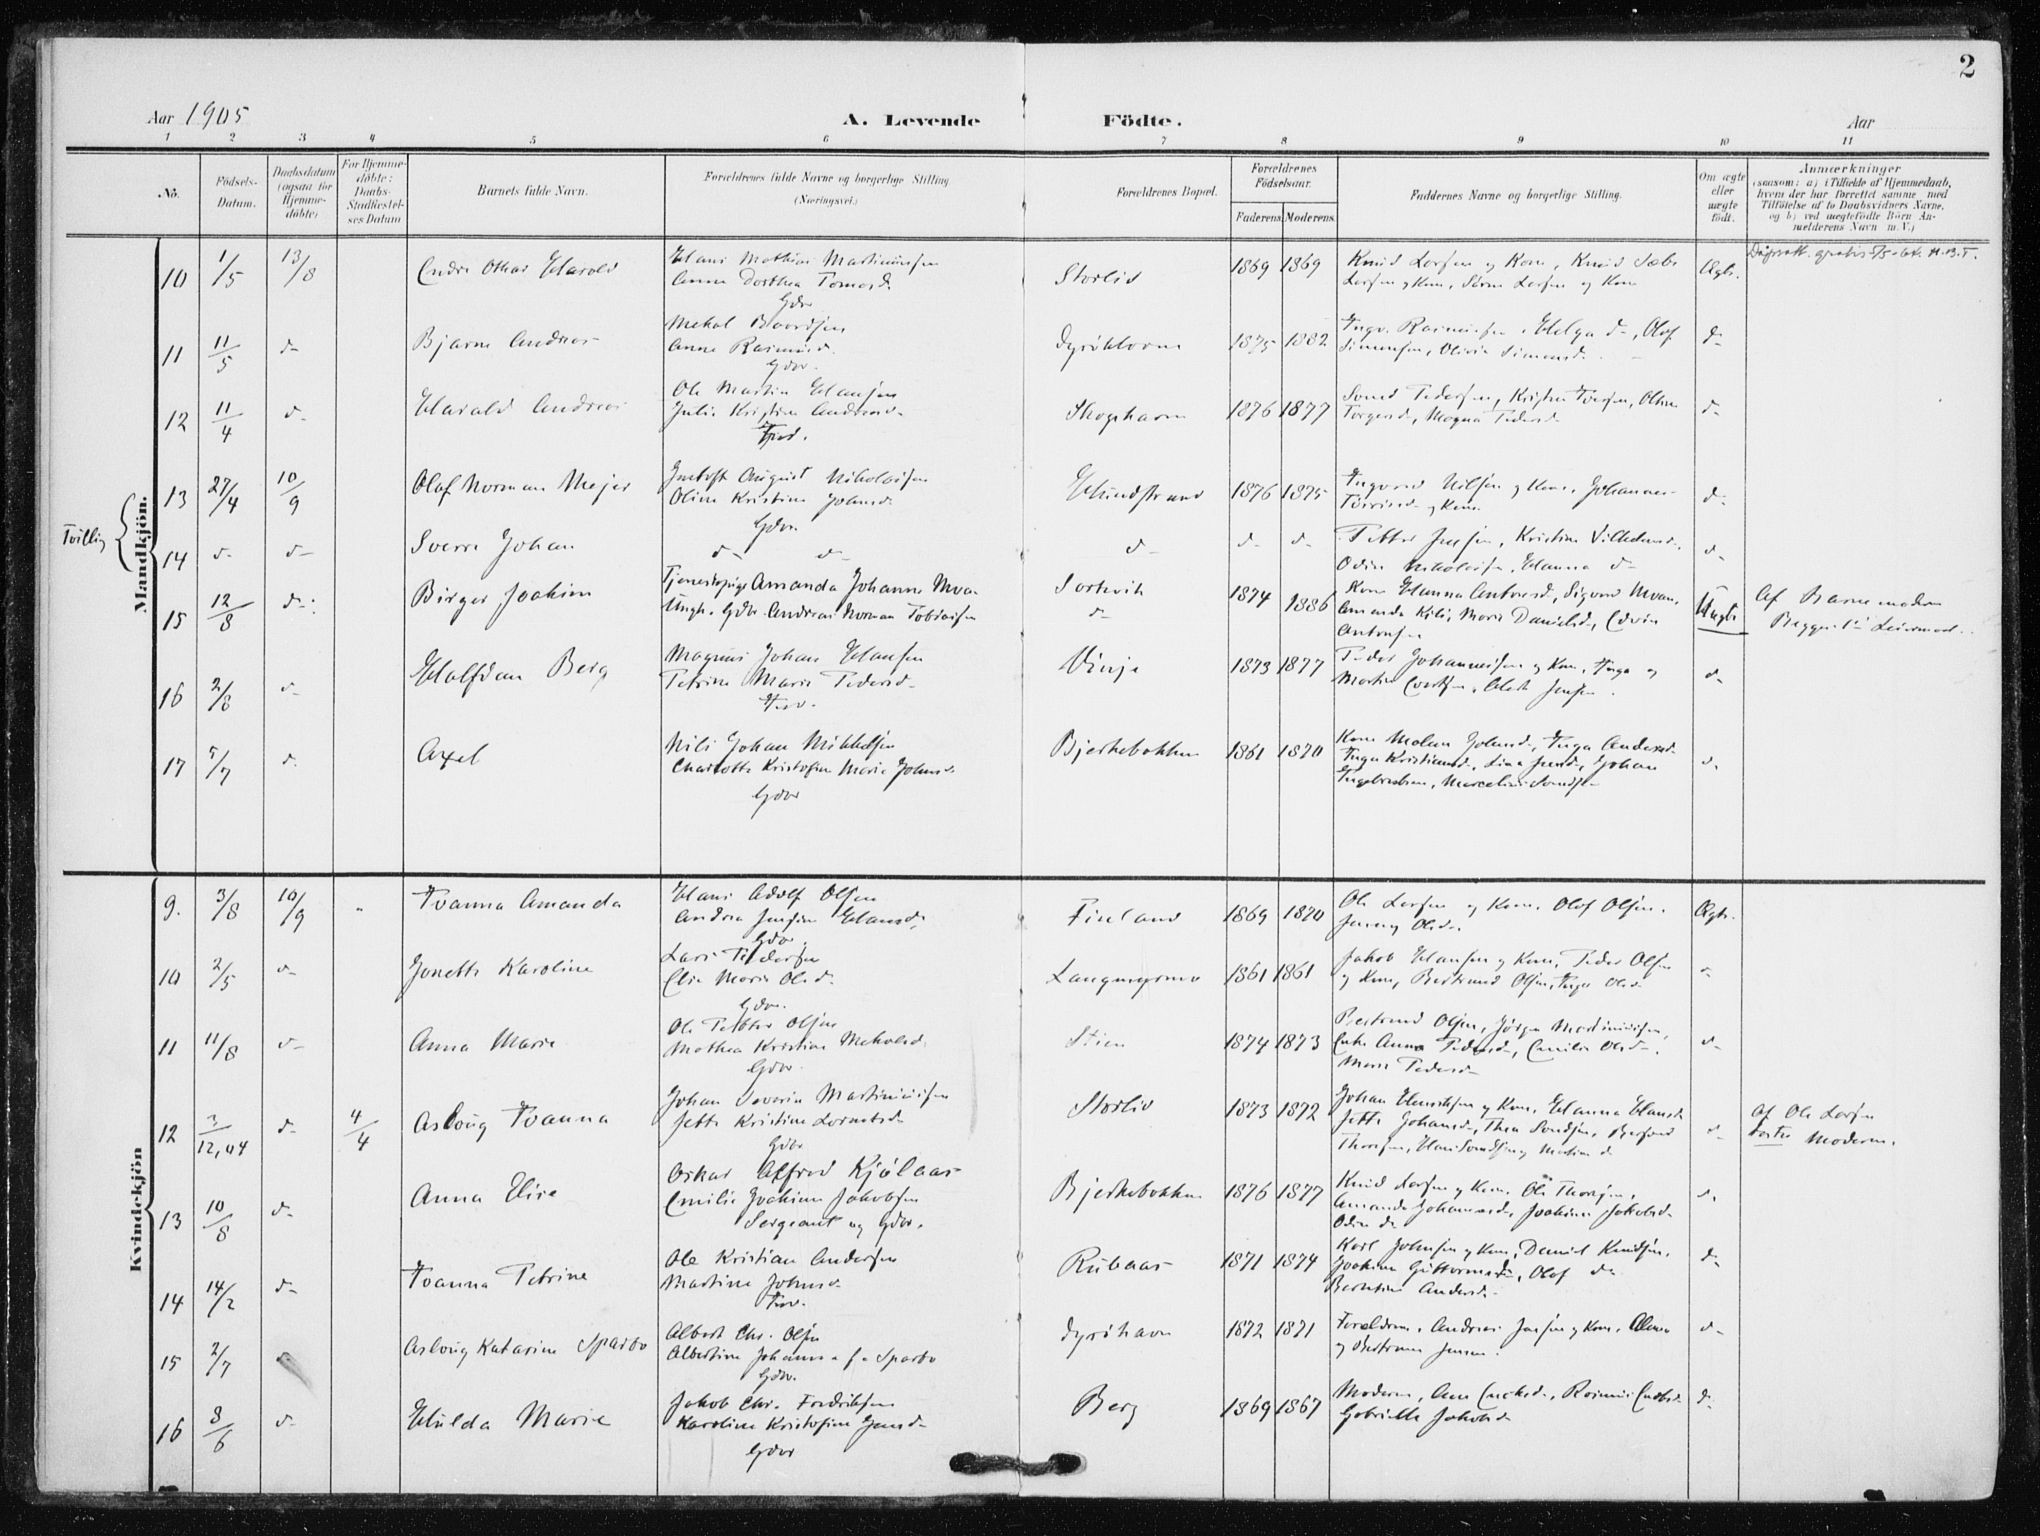 2
Aar 1905
A. Levende Födte.
Aar
1 2 3 4 5 6 7 8 9 10 11
No.
Födsels-Datum.
Daabsdatum (ogsaa for Hjemme-döbte)
For Hjemme-döbte: Daabs-Stadfæstel-ses Datum
Barnets fulde Navn.
Forældrenes fulde Navne og borgerlige Stilling (Næringsvei.)
Forældrenes Bopæl.
Forældrenes Födselsaar.
Faderens Moderens
Faddernes Navne og borgerlige Stilling.
Om ægte eller uægte födt.
Anmærkninger
(saasom: a) i Tilfælde af Hjemmedaab, hvem der har forrettet samme med Tilföielse af to Daabsvidners Navne, og b) ved uægtefödte Börn Anmelderens Navn m. V.)
Mandkjön.
10 1/5 13/8 Endre Othar Harald
Hans Mathias Martinussen
Anna Dorthea Tomasd.
Gdbr
Storlid 1869 1869
Knud Larsen og Kone, Knud
Larsen og Kone, Sören Larsen og Kone
Ægte.
11 11/5 d- Bjarne Andreas
Mekal Baardsen
Anne Rasmusd.
Gdbr.
Dyröklovn 1875 1882
Ingv. Rasmussen, Helga d-, Olaf
Simonsen, Olivia Simonsd.
d-
12 11/4 d- Harald Andreas
Ole Martin Hansen
Julie Kristine Andreasd-
Skoghavn 1876 1877
Pedersen, Kristen Iversen,
Torgersd, Magna Pedersd
d-
Tvilling
13 27/4 10/9 Olaf Norman Mejer
Gustaft August Nikolaisen
Oline Kristine Johansd.
Gdbr.
Hundstrand 1876 1875
Ingvard Nilsen og Kone, Johannes
og Kone
d-
14 d- d- Sverre Johan
d- d-
d- d- d-
Petter Jensen, Kristine
Odin Nikolaisen, Hanna d-
d-
15 12/8 d- Birger Joakim
Tjenestepige Amanda Johanne Moan
Ungk. Gdbr. Andreas Norman Tobiassen
Sortvik
d-
1874 1886
Kone Hanna Antonsd, Sigvard Moan,
Amanda Kild, Marie Danielsd, Edvin
Antonsen
Uægte
Af Barnemoderen
Begges 1ste Leiermaal.
16 2/8 d- Halfdan Berg
Magnus Johan Hansen
Petrine Marie Pedersd-
Vinje 1873 1877
Peder Johannessen og Kone, Inga og
Martin Jensen.
d-
17 5/7 d. Axel
Nils Johan Mikkelsen
Charlotte Kristofine Marie Johnsd
Gdbr
Bjerkebakken 1861 1870
Kone Malene Johnsd, Inga Andersd
Inga Kristiansd, Lina Jensd, Johan
Ingebrigtsen, Marcelius
d-
Kvindekjön
9. 3/8 10/9 " Ivanna Amanda
Hans Adolf Olsen
Andrea Jensine Hansd.
Gdbr
Finland 1869 1870
Ole Larsen og Kone, Olaf Olsen,
Jenny Olsd.
Ægte.
10 2/5 d- Jonette Karoline
Lars Pedersen
Elen Marie Olsd.
Gdbr.
Langmyrmo 1861 1861
Jakob Hansen og Kone, Peder Olsen
og Kone, Bertrand Olsen, Inga Olsd
d-
11 11/8 d- Anna Marie
Ole Petter Olsen
Mathea Kristine Mekalsd.
Gdbr.
Stien 1874 1873
Bertrand Olsen, Jörgen Martinussen,
Enke Anna Pedersd, Emilie Olsd-,
Marie Pedersd-
d-
12 3/12,04 d- 4/4 Aslaug Ivanna
Johan Severin Martinussen
Jette Kristine Lorentsd
Gdbr
Storlid 1873 1872
Johan Henriksen og Kone, Hanna Hansd
Jette Johansd, Thea
d-
Af Ole Larsen
Moderen.
13 10/8 d- Anna Elise
Oskar Alfred Kjölaas
Emilie Joakime Jakobsen
Sergeant og Gdbr.
Bjerkebakken 1876 1877
Knud Larsen og Kone, Ole Thoresen,
Amanda Johannesd, Joakime Jakobsd-
Odin d-
d.
14 14/2 d- Ivanna Petrine
Ole Kristian Andersen
Martine Johnsd
Rubaas 1871 1874
Karl Johnsen og Kone, Daniel Knudsen,
Joakim Guttormsen, Olaf d-
Berntine Andersd-
d-
15 2/7 d Aslaug Katarine Sparbo
Albert Chr. Olsen
Albertine Johanna f. Sparbo
Gdbr.
Dyröhavn 1872 1871
Forældrene, Andreas Jensen og Kone,
og Jensen.
d-
16 8/6 d- Hulda Marie
Jakob Chr. Fredriksen
Karoline Kristofine Jensd-
Gdbr
Berg 1869 1867
Moderen, Ane, Rasmus
Gabrielle Jakobsd
d-